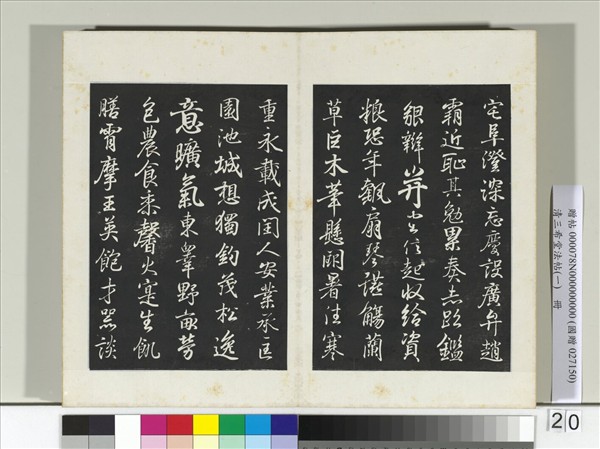 宅阜澄深忘靡設廣弁趙
霸近恥其勉累奏去鑑
貌辨并信起收給資
粮恐年觀扇琴謹觴蘭
草巨木華懸雨暑往寒
重永載成閏人安業承匡
園池城想獨釣茂松逸
意曠氣東羣野畝勞
包農食來馨火寔生飢
膳霄摩王英飽才器談
贈帖 000078N000000000 (國贈 027150)
清三希堂法帖(一) 冊
20